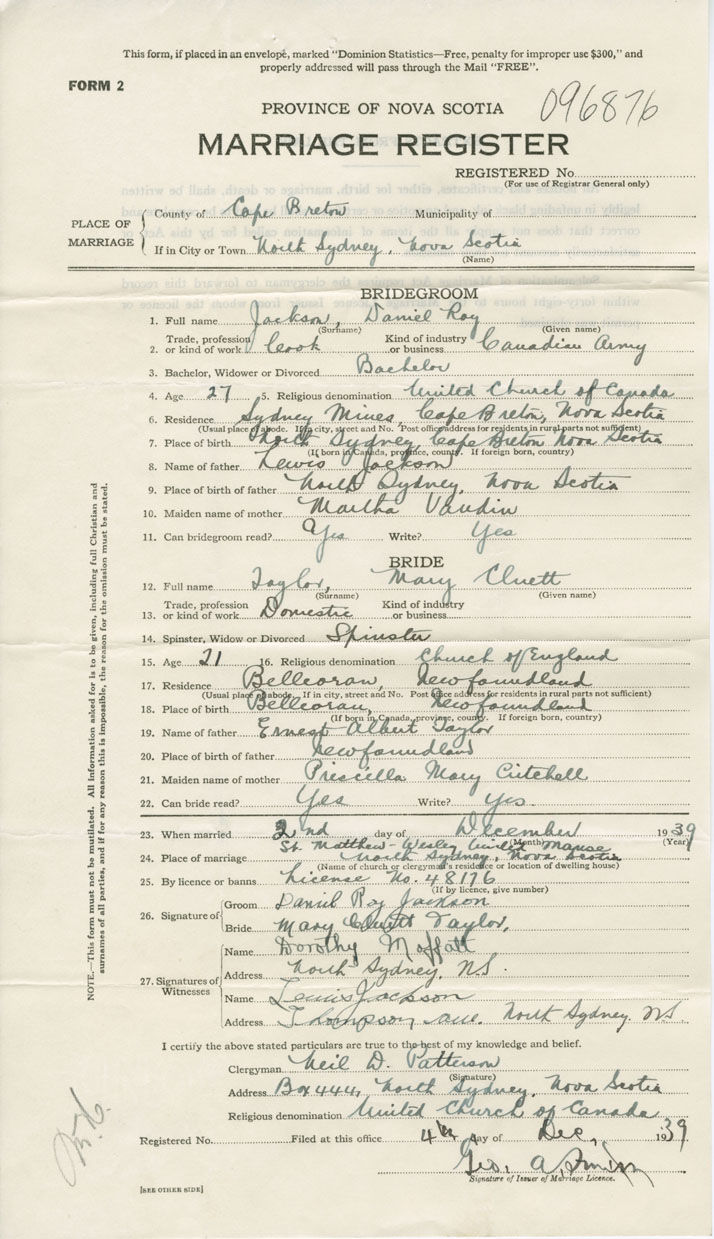 This form, if placed in an envelope, marked "Dominion Statistics—Free, penalty for improper use $300," and
properly addressed will pass through the Mail "FREE".
FORM 2
096876
PROVINCE OF NOVA SCOTIA
MARRIAGE REGISTER
REGISTERED No.
(For use of Registrar General only)
PLACE OF MARRIAGE
County of Cape Breton Municipality of
If in City or Town North Sydney, Nova Scotia
(Name)
BRIDEGROOM
1. Full name Jackson, Daniel Roy
(Surname) (Given name)
2. Trade, profession or kind of work Cook Kind of industry or business Canadian Army
3. Bachelor, Widower or Divorced Bachelor
4. Age 27 5. Religious denomination United Church of Canada
6. Residence Sydney Mines, Cape Breton, Nova Scotia
(Usual place of abode. If in city, street and No. Post office address for residents in rural parts not sufficient)
7. Place of birth North Sydney, Cape Breton Nova Scotia
(If born in Canada, province, county. If foreign born, country)
8. Name of father Lewis Jackson
9. Place of birth of father North Sydney, Nova Scotia
10. Maiden name of mother Martha Vaudin
11. Can bridegroom read? Yes Write? Yes
BRIDE
12. Full name Taylor, Mary Cluett
(Surname) (Given name)
13. Trade, profession or kind of work Domestic Kind of industry or business
14. Spinster, Widow or Divorced Spinster
15. Age 21 16. Religious denomination Church of England
17. Residence Belleoram, Newfoundland
(Usual place of abode. If in city, street and No. Post office address for residents in rural parts not sufficient)
18. Place of birth Belleoram, Newfoundland
(If born in Canada, province, county. If foreign born, country)
19. Name of father Ernest Albert Taylor
20. Place of birth of father Newfoundland
21. Maiden name of mother Priscilla Mary Critchell
22. Can bride read? Yes Write? Yes.
23. When married 2nd day of December 1939
(Month) (Year)
St. Matthew-Wesley United Manse
24. Place of marriage North Sydney, Nova Scotia
(Name of church or clergyman's residence or location of dwelling house)
25. By licence or banns License No. 48176
(If by licence, give number)
26. Signature of
Groom Daniel Roy Jackson
Bride Mary Cluett Taylor,
27. Signatures of Witnesses
Name Dorothy Moffatt
Address North Sydney, N.S.
Name Lewis Jackson
Address Thompson ave. North Sydney. N.S.
I certify the above stated particulars are true to the best of my knowledge and belief.
Clergyman Neil D. Patterson
(Signature)
Address Box 444, North Sydney, Nova Scotia
Religious denomination United Church of Canada
Registered No. Filed at this office 4th day of Dec, 1939
Geo. A.
Signature of Issuer of Marriage Licence.
[SEE OTHER SIDE]
NOTE.—This form must not be mutilated. All information asked for is to be given, including full Christian and
surnames of all parties, and if for any reason this is impossible, the reason for the omission must be stated.